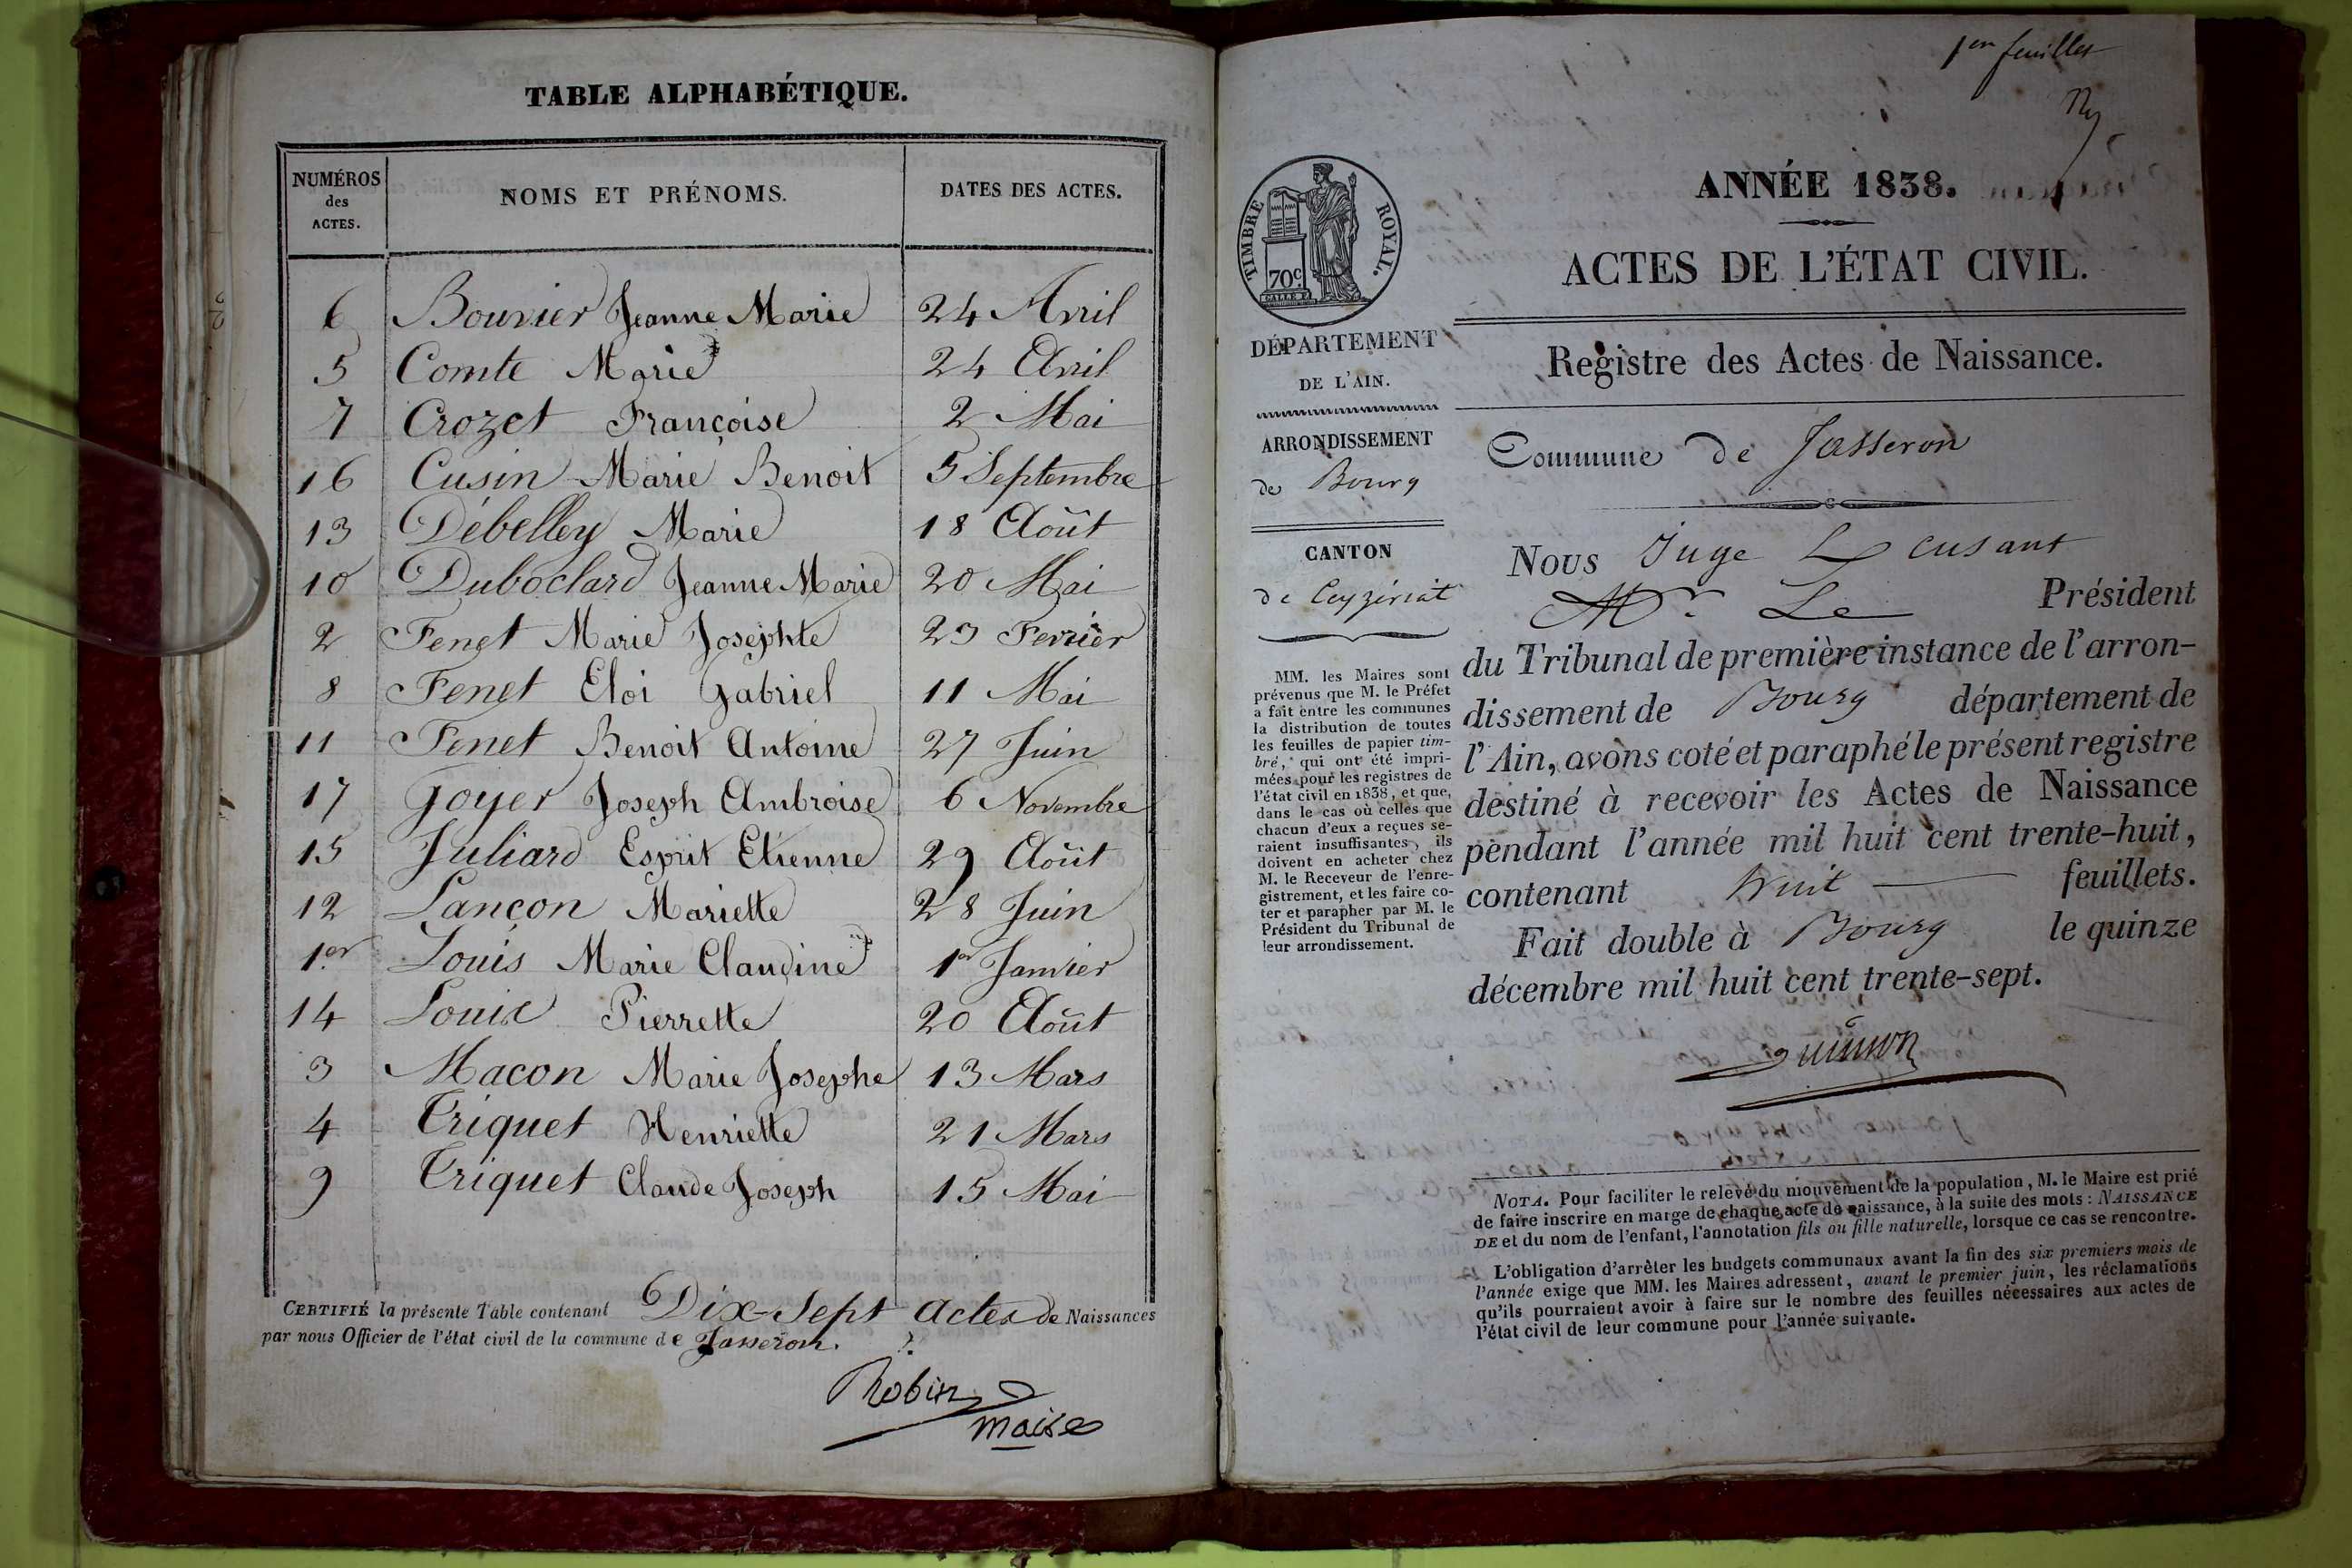 TABLE ALPHABÉTIQUE.
NUMÉROS des ACTES. NOMS ET PRÉNOMS. DATES DES ACTES.
6 Bouvier Jeanne Marie 24 Avril
5 Comte Marie 24 Avril
7 Crozet Françoise 2 Mai
16 Cusin Marie Benoit 5 Septembre
13 Débelley Marie 18 Août
10 Duboclard Jeanne Marie 20 Mai
2 Fenet Marie Josephte 23 Fevrier
8 Fenet Eloi Gabriel 11 Mai
11 Fenet Benoit Antoine 27 Juin
17 Goyer Joseph Ambroise 6 Novembre
15 Juliard Esprit Etienne 29 Août
12 Lançon Mariette 28 Juin
1er Louis Marie Claudine 1er Janvier
14 Louis Pierrette 20 Août
3 Macon Marie Josephe 13 Mars
4 Triquet Henriette 21 Mars
9 Triquet Claude Joseph 15 Mai
CERTIFIÉ la présente Table contenant Dix-Sept actes de Naissances
par nous Officier de l'état civil de la commune de Jasseron.
Robin
maire
1er feuillet
TIMBRE ROYAL.
70c.
ANNÉE 1838.
ACTES DE L'ÉTAT CIVIL.
Registre des Actes de Naissance.
DÉPARTEMENT
DE L'AIN.
ARRONDISSEMENT
de Bourg
CANTON
de Ceyzériat
MM. les Maires sont
prévenus que M. le Préfet
a fait entre les communes
la distribution de toutes
les feuilles de papier tim-
bré, qui ont été impri-
mées pour les registres de
l'état civil en 1838, et que,
dans le cas où celles que
chacun d'eux a reçues se-
raient insuffisantes, ils
doivent en acheter chez
M. le Receveur de l'enre-
gistrement, et les faire co-
ter et parapher par M. le
Président du Tribunal de
leur arrondissement.
Commune de Jasseron
Nous Juge
Mr. Le Président
du Tribunal de première instance de l'arron-
dissement de Bourg département de
l'Ain, avons coté et paraphé le présent registre
destiné à recevoir les Actes de Naissance
pendant l'année mil huit cent trente-huit,
contenant huit feuillets.
Fait double à Bourg le quinze
décembre mil huit cent trente-sept.
NOTA. Pour faciliter le relevé du mouvement de la population, M. le Maire est prié
de faire inscrire en marge de chaque acte de naissance, à la suite des mots : NAISSANCE
DE et du nom de l'enfant, l'annotation fils ou fille naturelle, lorsque ce cas se rencontre.
L'obligation d'arrêter les budgets communaux avant la fin des six premiers mois de
l'année exige que MM. les Maires adressent, avant le premier juin, les réclamations
qu'ils pourraient avoir à faire sur le nombre des feuilles nécessaires aux actes de
l'état civil de leur commune pour l'année suivante.